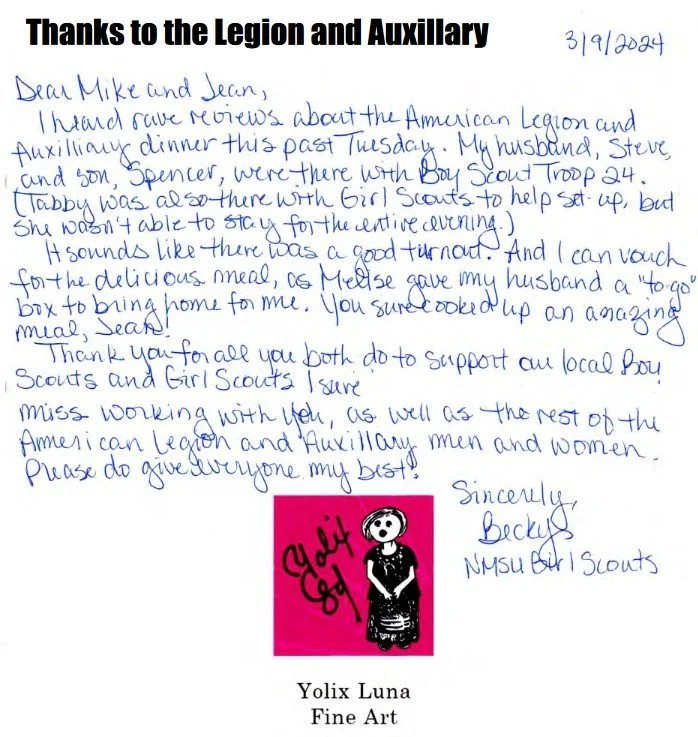 Thanks to the Legion and Auxillary
3/9/2024
Dear Mike and Jean,
I heard rave reviews about the American Legion and
Auxilliary dinner this past Tuesday. My husband, Steve,
and son, Spencer, were there with Boy Scout Troop 24.
(Tabby was also there with Girl Scouts to help set-up, but
she wasn't able to stay for the entire evening.)
It sounds like there was a good turnout. And I can vouch
for the delicious meal, as Melise gave my husband a "to go"
box to bring home for me. You sure cooked up an amazing
meal, Jean!
Thank you for all you both do to support our local Boy
Scouts and Girl Scouts I sure
miss working with you, as well as the rest of the
American Legion and Auxillary men and women.
Please do give everyone my best!
Sincerely,
Becky
NMSU Girl Scouts
Yolix
Yolix Luna
Fine Art